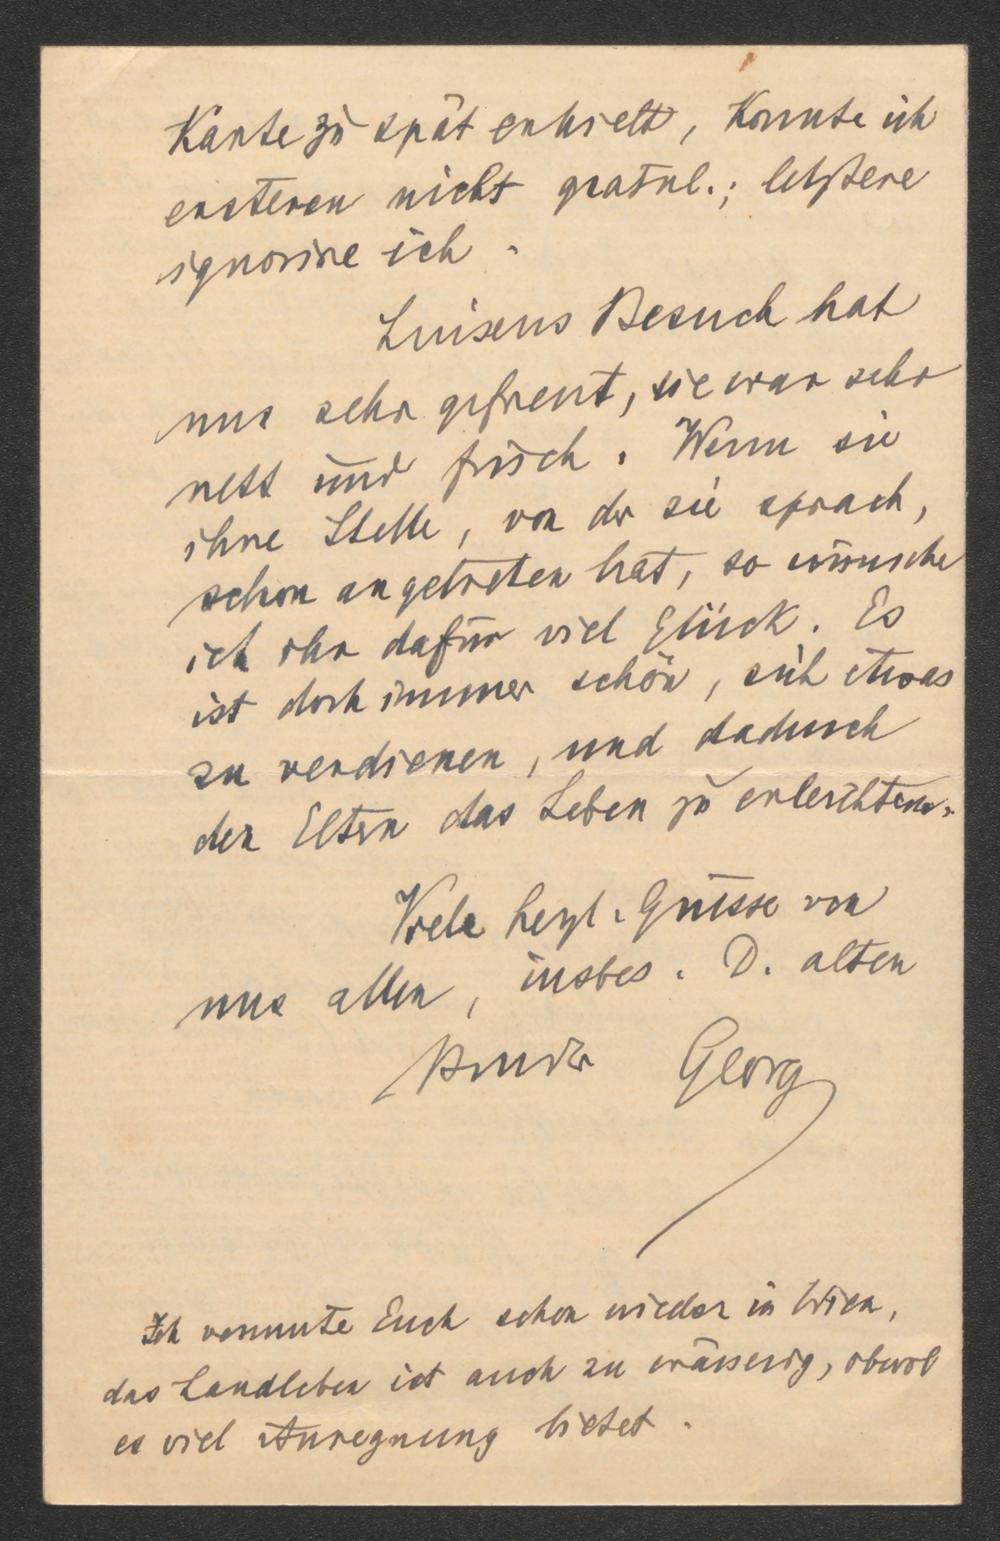 Karte zu spät erhielt, konnte ich
ersteren nicht gratul.; letztere
ignorire ich.
Luisens Besuch hat
uns sehr gefreut, sie war sehr
nett und frisch. Wenn sie
ihre Stelle, von der sie sprach,
schon angetreten hat, so wünsche
ich ihr dafür viel Glück. Es
ist doch immer schön, sich etwas
zu verdienen, und dadurch
den Eltern das Leben zu erleichtern.
Viele herzl. Grüsse von
uns allen, insbes. D. alten
Bruder Georg
Ich vermute Euch schon wieder in Wien,
das Landleben ist auch zu wässerig, obwol
es viel Anregnung bietet.